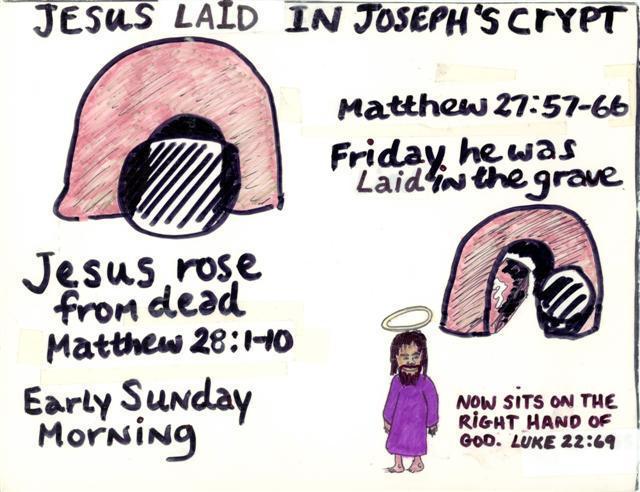 JESUS LAID IN JOSEPH'S CRYPT
Matthew 27:57-66
Friday he was
Laid in the grave
Jesus rose
from dead
Matthew 28:1-10
Early Sunday
Morning
NOW SITS ON THE
RIGHT HAND OF
GOD. LUKE 22:69